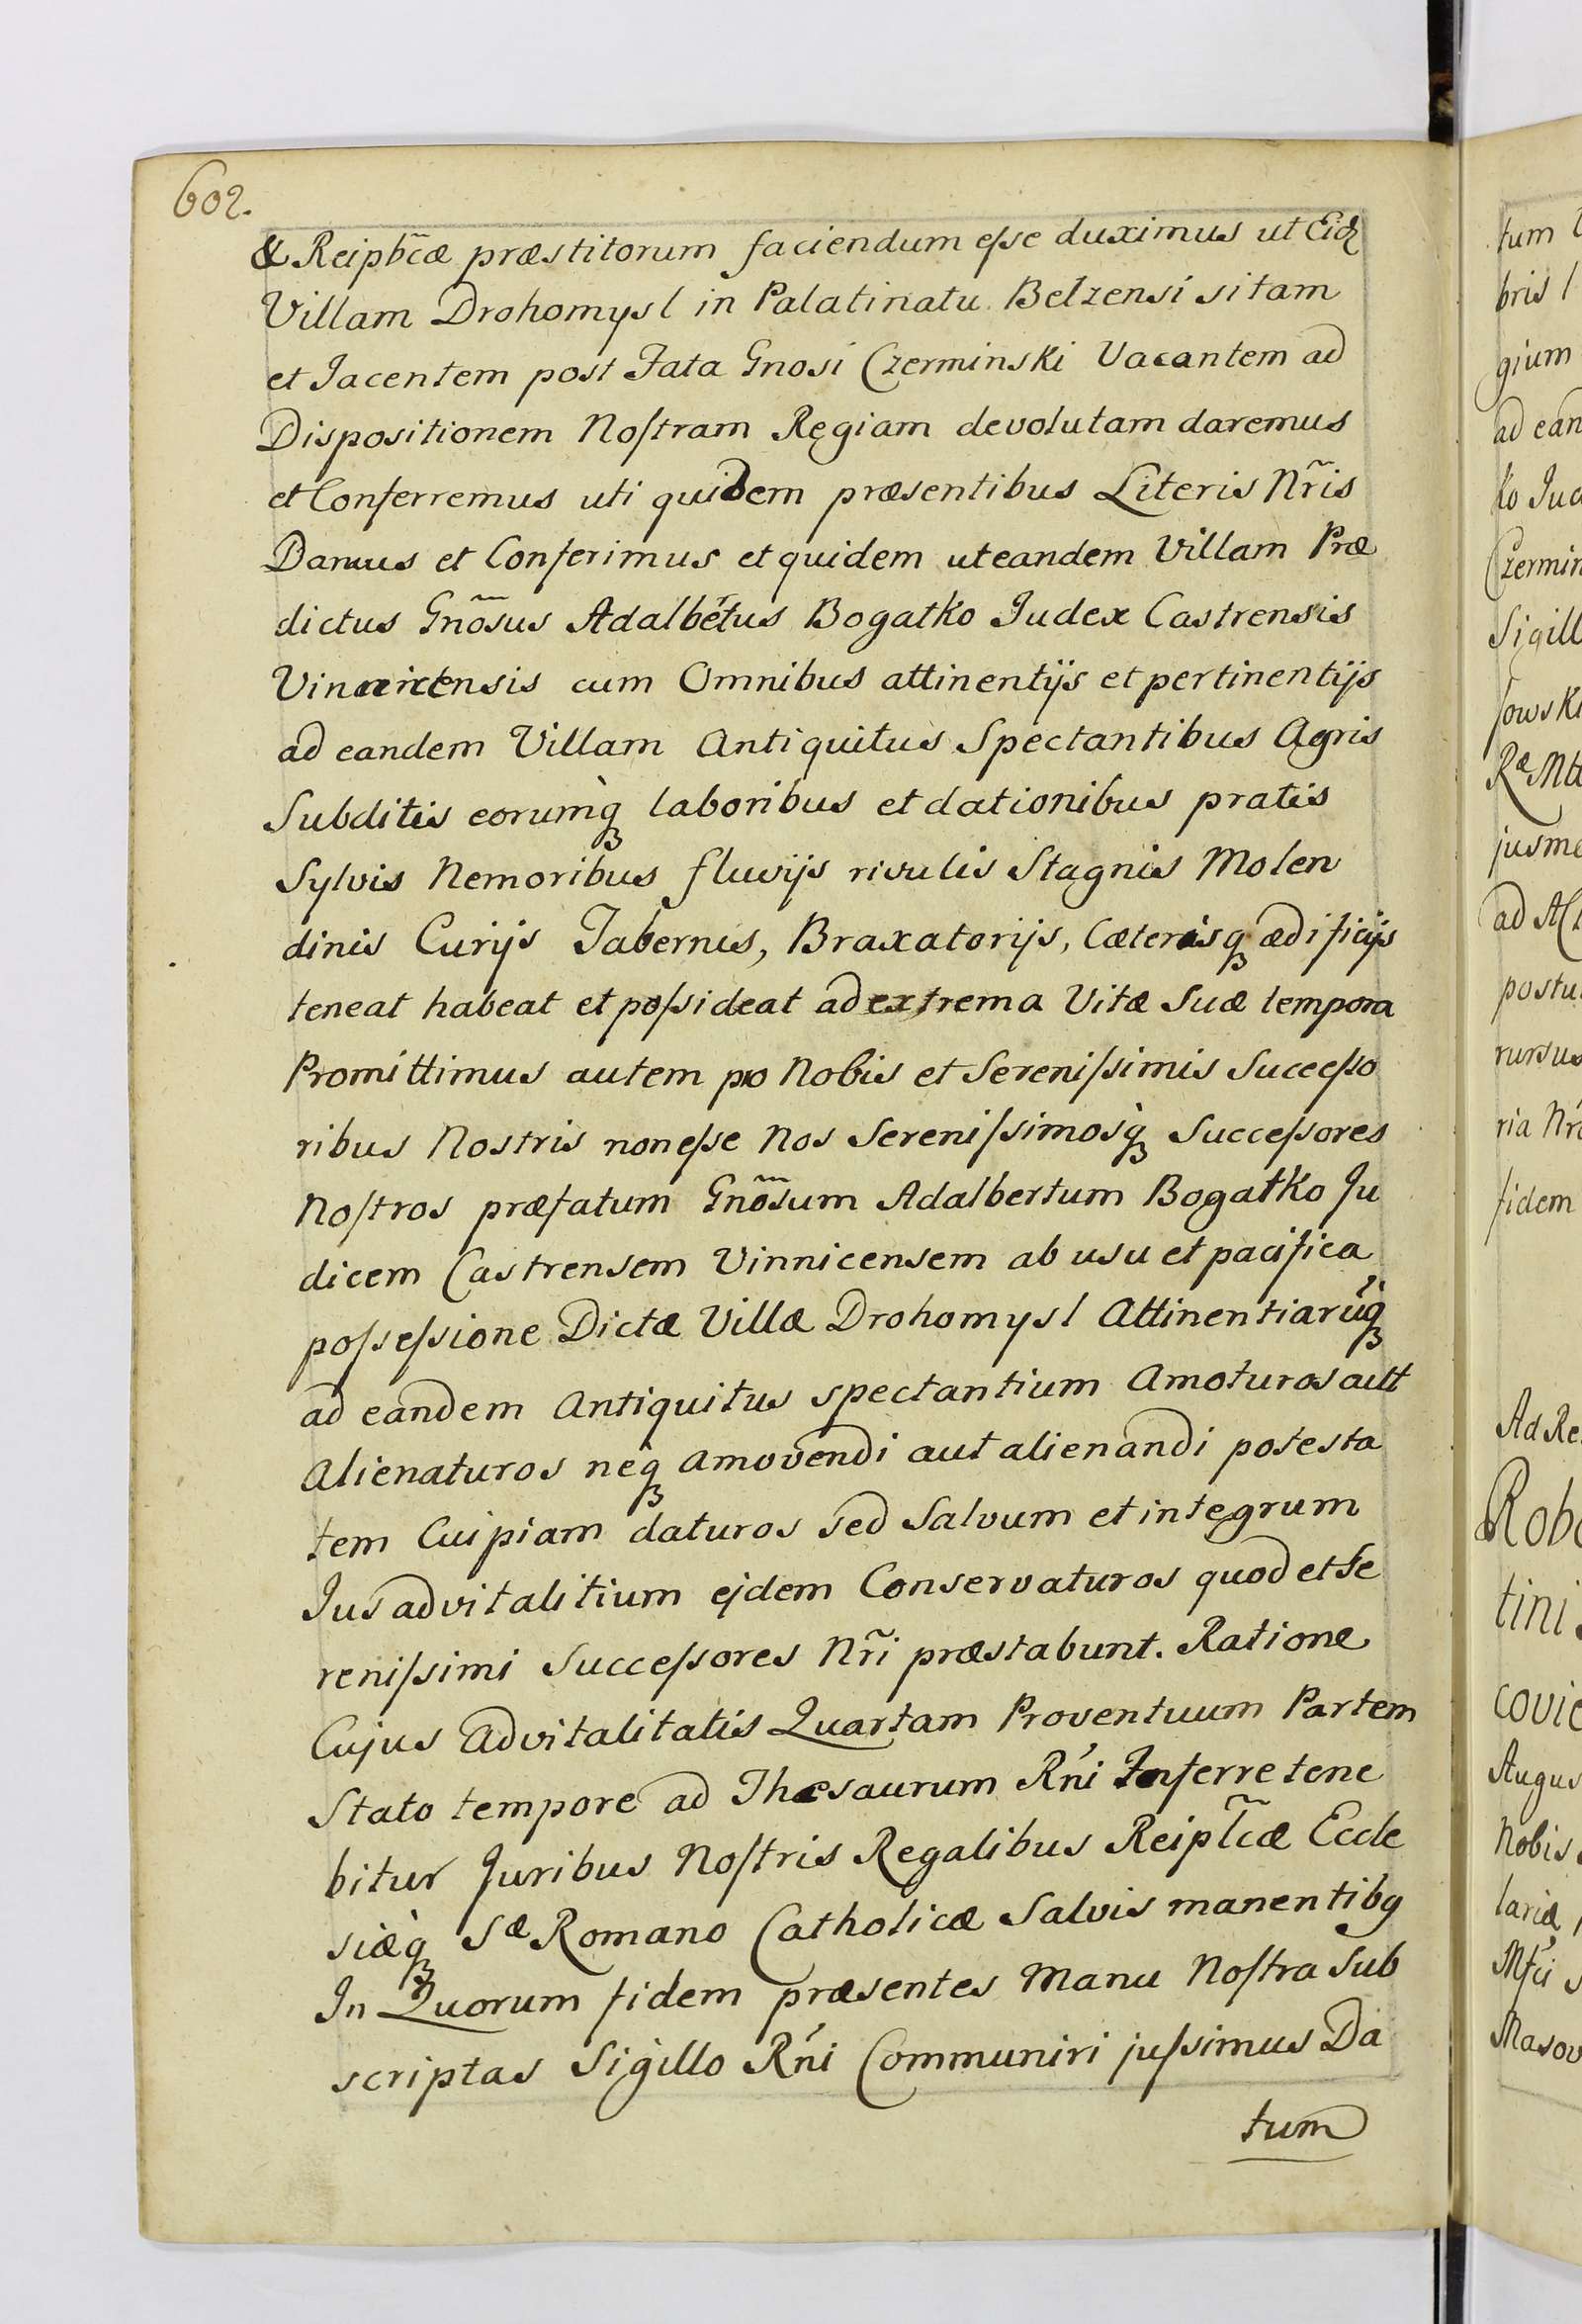 602.
& Reipb̃cæ præstitorum faciendum eſse duximus ut Eidꝫ
Villam Drohomysl in Palatinatu Belzensi sitam
et Jacentem post Fata Gnosi Czerminski Vacantem ad
Dispositionem Noſtram Regiam devolutam daremus
et Conferremus uti quidem præsentibus Literis Nr̃is
Damus et Conferimus et quidem ut eandem Villam Præ
dictus Gnõsus Adalbẽtus Bogatko Judex Castrensis
Vinnicensis cum Omnibus attinentijs et pertinentijs
ad eandem Villam Antiquitus Spectantibus Agris
Subditis eorumq̀ꝫ laboribus et dationibus pratis
Sylvis Nemoribus fluvijs rivulis Stagnis Molen
dinis Curijs Tabernis, Braxatorijs, Cæterisqꝫ ædificijs
teneat habeat et poſsideat ad extrema Vitæ Suæ tempora
Promittimus autem pro Nobis et Sereniſsimis Succeſso
ribus Nostris non eſse Nos Sereniſsimosq̀ꝫ Succeſsores
Noſtros præfatum Gnõsum Adalbertum Bogatko Ju
dicem Castrensem Vinnicensem ab usu et pacifica
poſseſsione Dictæ Villæ Drohomysl Attinentiarũq̀ꝫ
ad eandem Antiquitus spectantium Amoturos autt
Alienaturos neq̀ꝫ amovendi aut alienandi potesta
tem Cuipiam daturos sed Salvum et integrum
Jus advitalitium ejdem Conservaturos quod et Se
reniſsimi Succeſsores Nr̃i præstabunt. Ratione
Cujus Advitalitatis Quartam Proventuum Partem
Stato tempore ad Thæsaurum Rńi Inferre tene
bitur Juribus Noſtris Regalibus Reipl̃cæ Eccle
siæq̀ꝫ Sæ Romano Catholicæ Salvis manentibꝯ
In Quorum fidem præsentes Manu Noſtra Sub
scriptas Sigillo Rńi Communiri juſsimus Da
tum